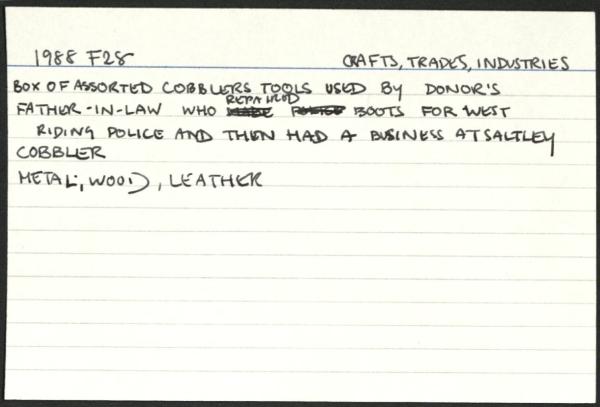 1988 F28 CRAFTS, TRADES, INDUSTRIES
BOX OF ASSORTED COBBLERS TOOLS USED BY DONOR'S
FATHER-IN-LAW WHO REPAIRED BOOTS FOR WEST
RIDING POLICE AND THEN HAD A BUSINESS AT SALTLEY
COBBLER
METAL, WOOD, LEATHER